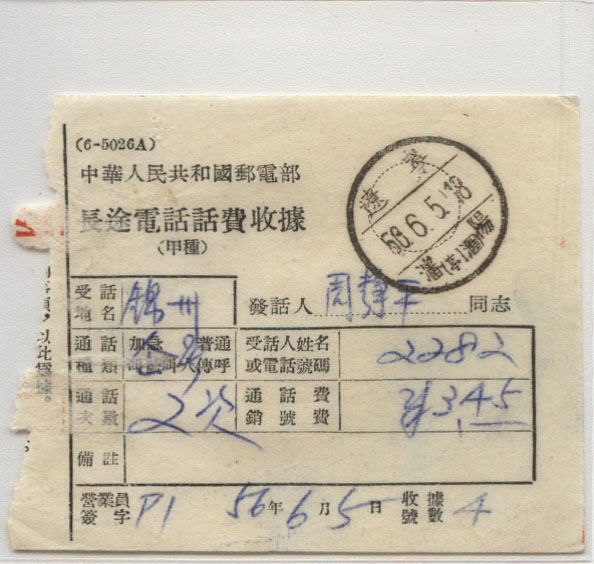 (6-5026A)
中華人民共和國郵電部
長途電話話費收據
(甲種)
遼寧
56.6.5.18
瀋陽
受話地名 錦州 發話人 周靜平 同志
通話種類 加急 普通 叫號 叫人 傳呼 受話人姓名或電話號碼 2282
通話次數 2次 通話費銷號費 3.45
備註
營業員簽字 P1 56年6月5日 收據號數 4
以此爲據。